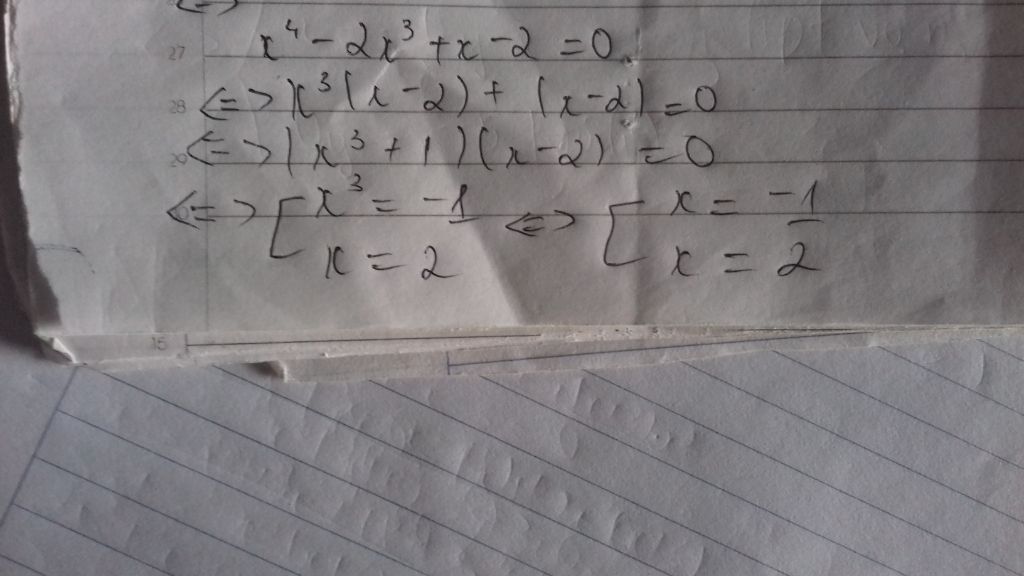 27 x⁴ - 2x³ + x - 2 = 0
28 <=> x³(x-2) + (x-2) = 0
29 <=> (x³ + 1)(x-2) = 0
<=> [ x³ = -1 <=> [ x = -1
x = 2 x = 2
15